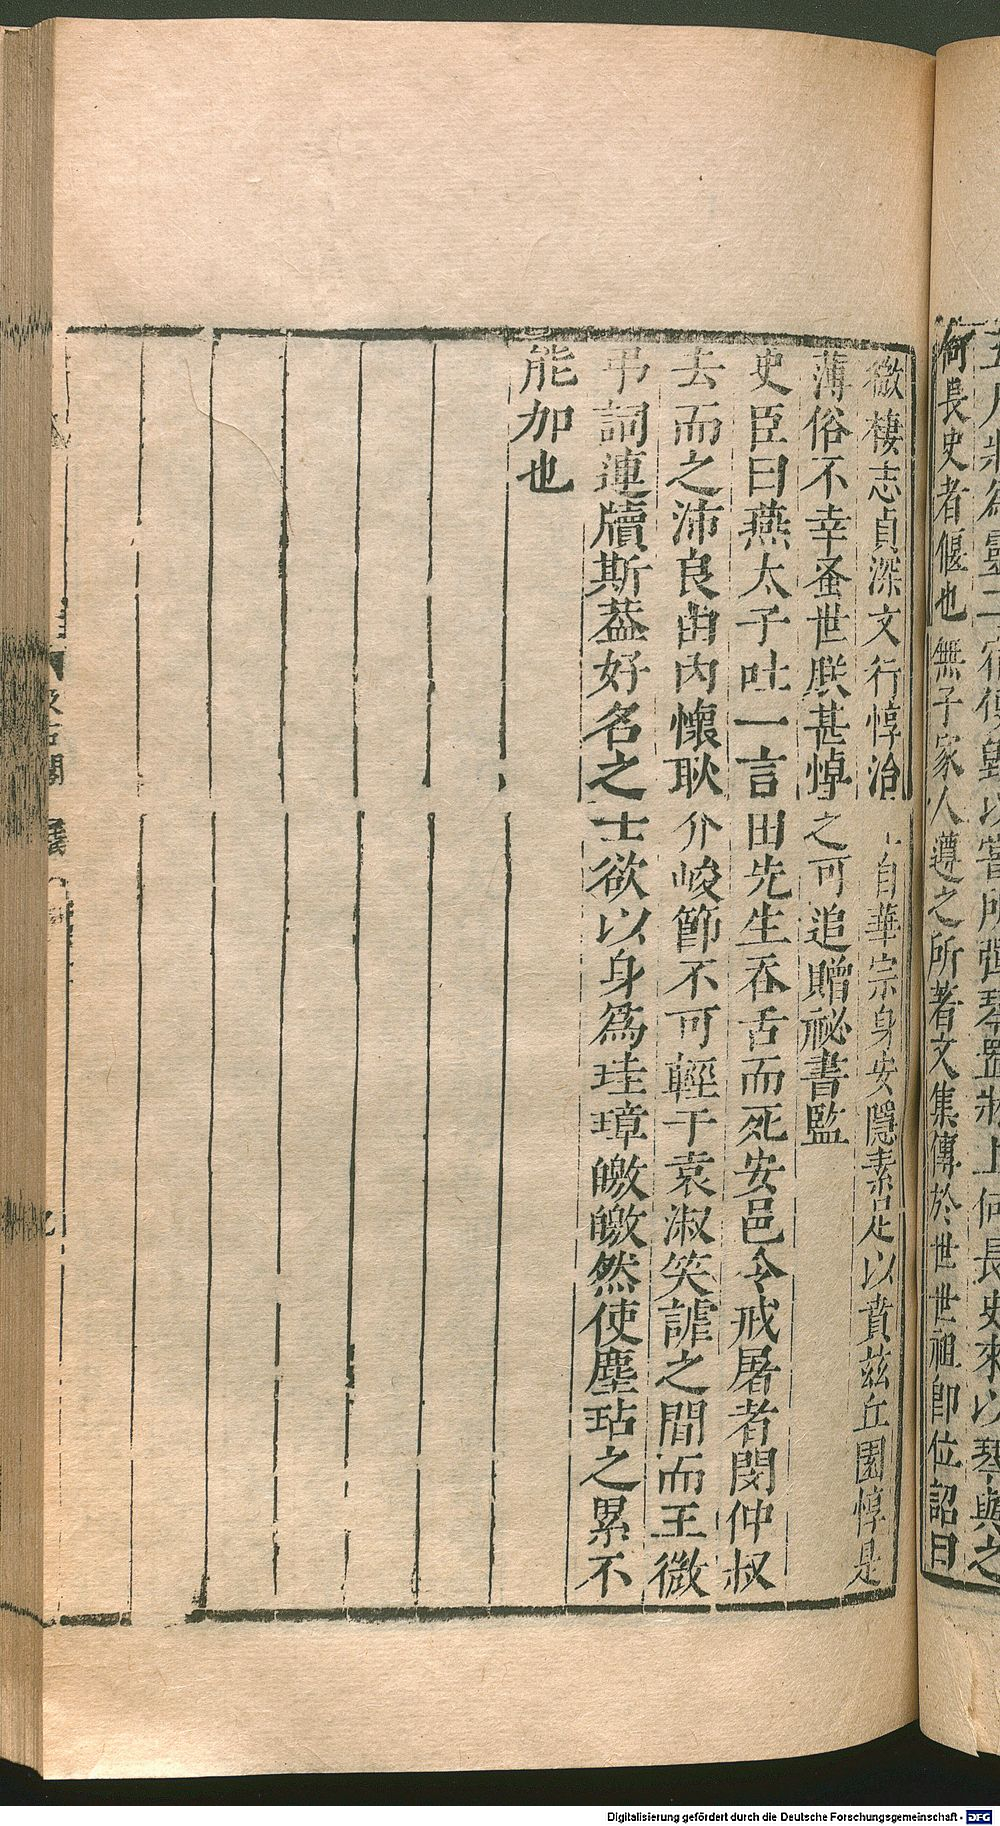 何長史者偃也無子家人遵之所著文集傳於世世祖卽位詔曰
微棲志貞深文行惇洽自華宗身安隱素足以賁茲丘園惇是
薄俗不幸蚤世朕甚悼之可追贈祕書監
史臣曰燕太子吐一言田先生吞舌而死安邑令戒屠者閔仲叔
去而之沛良由內懷耿介峻節不可輕干袁淑笑謔之間而王微
弔詞連牘斯葢好名之士欲以身爲珪璋皦皦然使塵玷之累不
能加也
Digitalisierung gefördert durch die Deutsche Forschungsgemeinschaft - DFG